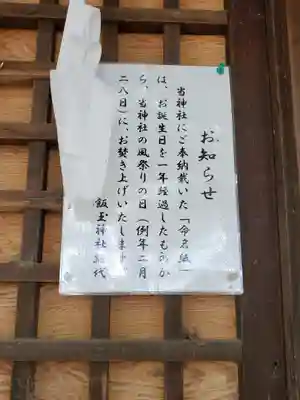 お知らせ
当神社にご奉納戴いた「命名紙」
は、お誕生日を一年経過したものか
ら、当神社の風祭りの日(例年二月
二八日)に、お焚き上げいたします
飯玉神社総代